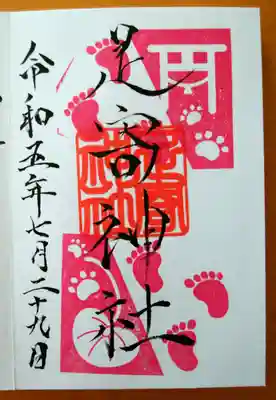 足寄神社
令和五年七月二十九日